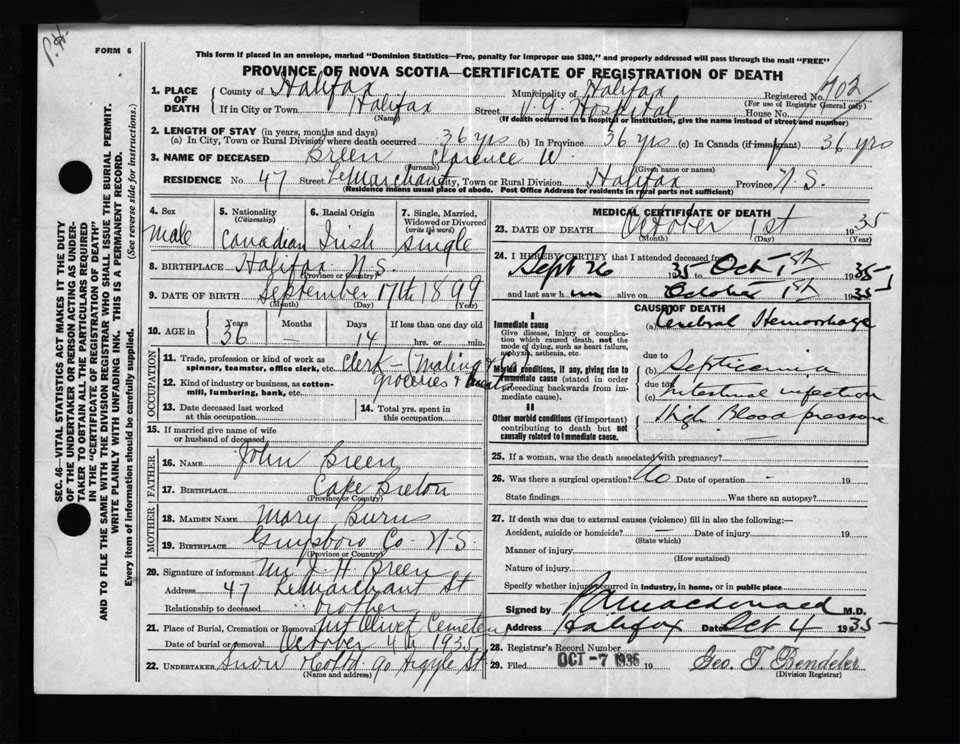 P.H.
FORM 6
This form if placed in an envelope, marked "Dominion Statistics—Free, penalty for improper use $300," and properly addressed will pass through the mail "FREE"
PROVINCE OF NOVA SCOTIA—CERTIFICATE OF REGISTRATION OF DEATH
1. PLACE OF DEATH County of Halifax Municipality of Halifax Registered No. 702
(For use of Registrar General only)
If in City or Town Halifax Street V.G. Hospital House No.
(Name) (If death occurred in a hospital or institution, give the name instead of street and number)
2. LENGTH OF STAY (in years, months and days)
(a) In City, Town or Rural Division where death occurred 36 yrs (b) In Province 36 yrs (c) In Canada (if immigrant) 36 yrs
3. NAME OF DECEASED Breen Clarence W.
(Surname) (Given name or names)
RESIDENCE No. 47 Street LeMarchant City, Town or Rural Division Halifax Province N.S.
(Residence means usual place of abode. Post Office Address for residents in rural parts not sufficient)
4. Sex Male
5. Nationality (Citizenship) Canadian
6. Racial Origin Irish
7. Single, Married, Widowed or Divorced (write the word) Single
8. BIRTHPLACE Halifax N.S.
(Province or Country)
9. DATE OF BIRTH September 17th 1899
(Month) (Day) (Year)
10. AGE in Years Months Days If less than one day old
36 — 14 hrs. or min.
OCCUPATION
11. Trade, profession or kind of work as spinner, teamster, office clerk, etc. Clerk - (Maling & Co)
12. Kind of industry or business, as cotton-mill, lumbering, bank, etc. groceries & meat
13. Date deceased last worked at this occupation
14. Total yrs. spent in this occupation
15. If married give name of wife or husband of deceased
FATHER
16. NAME John Breen
17. BIRTHPLACE Cape Breton
(Province or Country)
MOTHER
18. MAIDEN NAME Mary Burns
19. BIRTHPLACE Guysboro Co. N.S.
(Province or Country)
20. Signature of informant Mr J. H. Breen
Address 47 LeMarchant St
Relationship to deceased brother
21. Place of Burial, Cremation or Removal Mt Olivet Cemetery
Date of burial or removal October 4th 1935
22. UNDERTAKER Snow & Co Ltd. 90 Argyle St.
(Name and address)
MEDICAL CERTIFICATE OF DEATH
23. DATE OF DEATH October 1st 1935
(Month) (Day) (Year)
24. I HEREBY CERTIFY that I attended deceased from
Sept 26 1935 to Oct 1st 1935
and last saw him alive on October 1st 1935
CAUSE OF DEATH
I
Immediate cause
Give disease, injury or complication which caused death, not the mode of dying, such as heart failure, asphyxia, asthenia, etc.
(a) Cerebral Hemorrhage
due to
Morbid conditions, if any, giving rise to immediate cause (stated in order proceeding backwards from immediate cause).
(b) Septicemia
due to
(c) Intestinal infection
II
Other morbid conditions (if important) contributing to death but not causally related to immediate cause.
High Blood pressure
25. If a woman, was the death associated with pregnancy?
26. Was there a surgical operation? No Date of operation 19
State findings Was there an autopsy?
27. If death was due to external causes (violence) fill in also the following:—
Accident, suicide or homicide? Date of injury 19
(State which)
Manner of injury
(How sustained)
Nature of injury
Specify whether injury occurred in industry, in home, or in public place
Signed by Macdonald M.D.
Address Halifax Date Oct 4 1935
28. Registrar's Record Number
29. Filed OCT -7 1935 19 Geo. T. Bendeler
(Division Registrar)
SEC. 46—VITAL STATISTICS ACT MAKES IT THE DUTY
OF THE UNDERTAKER OR PERSON ACTING AS UNDER-
TAKER TO OBTAIN ALL THE PARTICULARS REQUIRED
IN THE "CERTIFICATE OF REGISTRATION OF DEATH"
AND TO FILE THE SAME WITH THE DIVISION REGISTRAR WHO SHALL ISSUE THE BURIAL PERMIT.
WRITE PLAINLY WITH UNFADING INK. THIS IS A PERMANENT RECORD.
Every item of information should be carefully supplied. (See reverse side for instructions.)